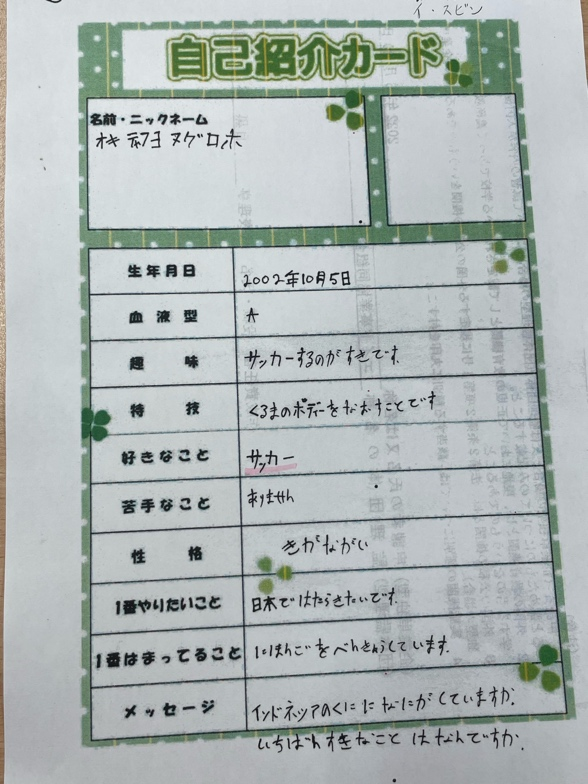 イ・スビン
自己紹介カード
名前・ニックネーム
オキ ヌグロホ
生年月日 2002年10月5日
血液型 A
趣味 サッカーするのがすきです.
特技 くるまのボディーをなおすことです
好きなこと サッカー
苦手なこと ありません
性格 きがながい
1番やりたいこと 日本ではたらきたいです.
1番はまってること にほんごをべんきょうしています.
メッセージ インドネッアのくに に なにがしていますか.
いちばんすきなこと はなんですか.